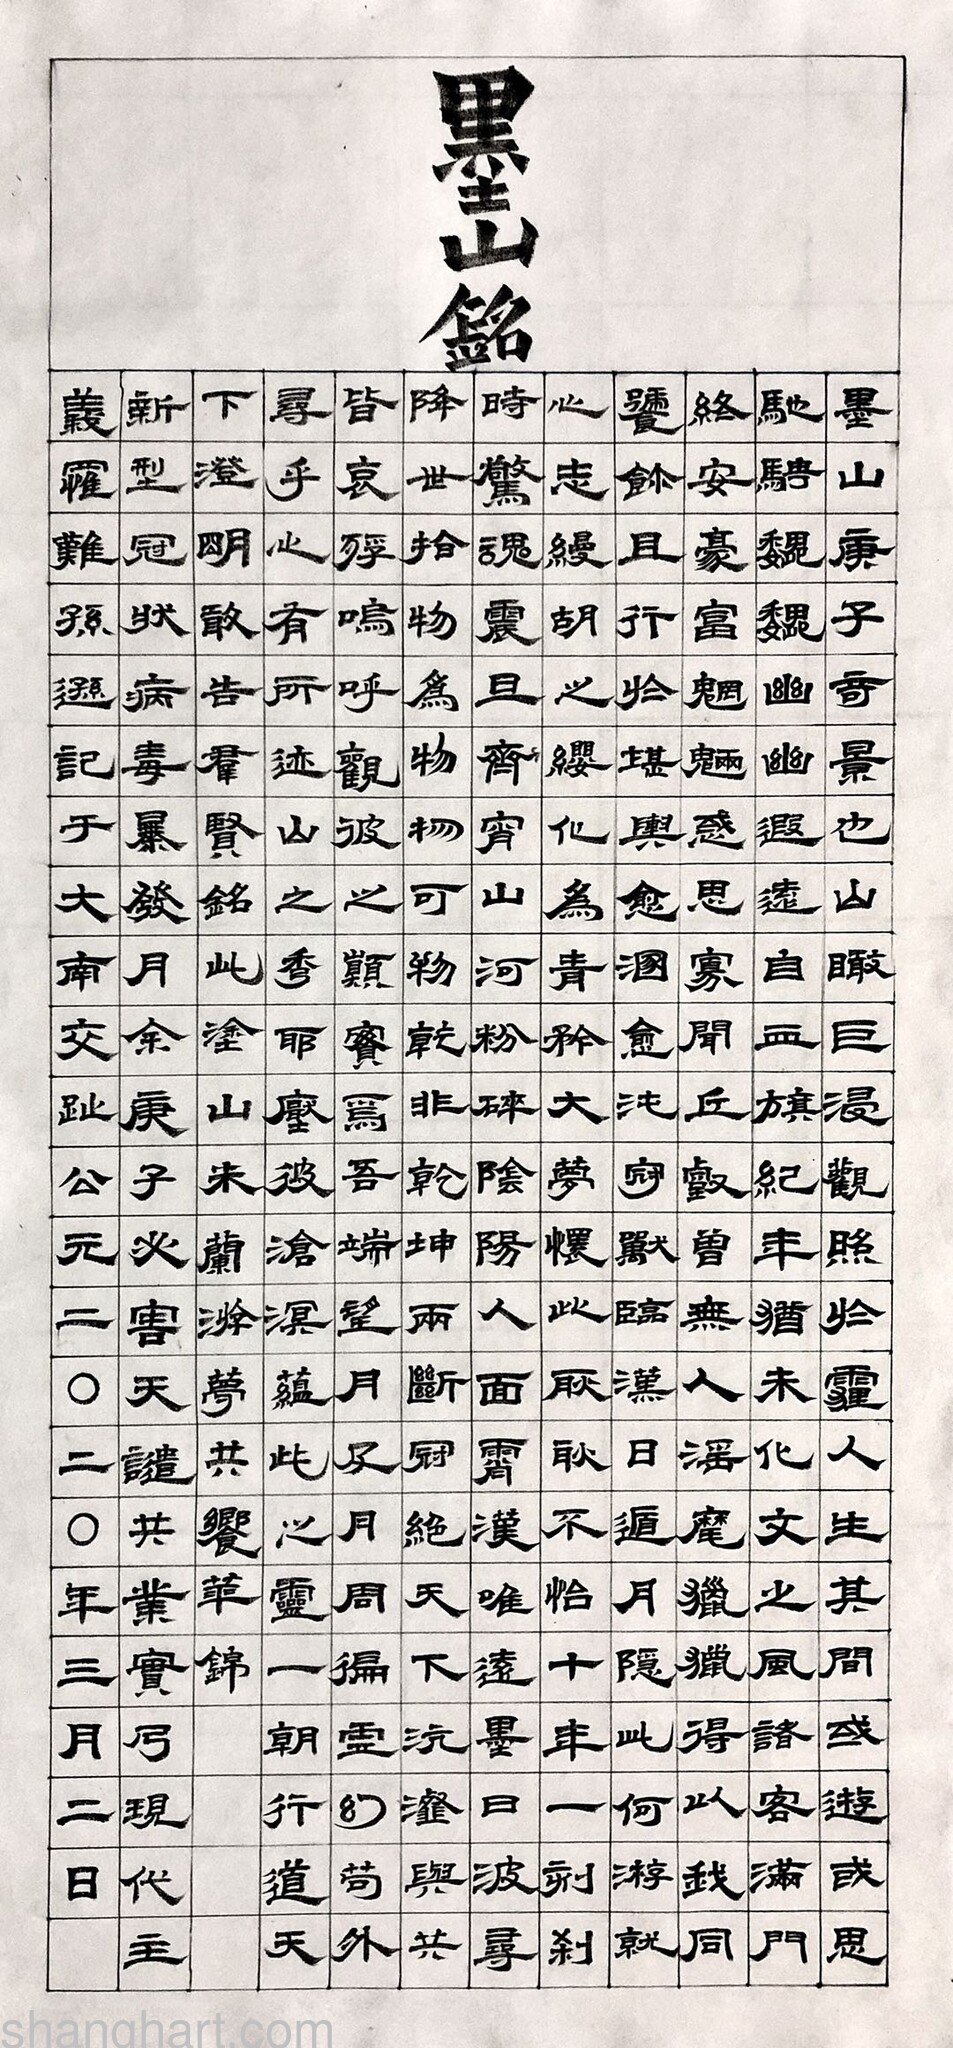 墨山銘
墨山庚子奇景也山瞰巨浸觀照於霍人生其間或遊或思
馳騁魏魏幽幽遐遠自血旗紀年猶未化文之風諸客滿門
絡安豪富魍魎惑思寡聞丘壑曾無人滛麾獵獵得以銭同
饕餘且行於堪輿愈溷愈沌守獸臨漢日遁月隱此何游就
心志縵胡之纓化為青矜大夢懷此耿耿不怡十年一刻刹
時驚魂震旦齊宵山河粉碎陰陽人面霄漢唯遠墨日波尋
降世拾物為物物可物乾非乾坤兩斷冠絕天下沆瀣與共
皆哀殍嗚呼觀彼之顛賓焉吾端望月及月周徧靈幻苟外
尋乎心有所迹山之香耶壓彼滄溟蘊此心靈一朝行道天
下澄明敢告羣賢銘此塗山朱蘭游夢共饗華錦
新型冠狀病毒暴發月余庚子火害天譴共業實乃現代主
義罹難孫遜記于大南交趾公元二〇二〇年三月二日
shanghart.com